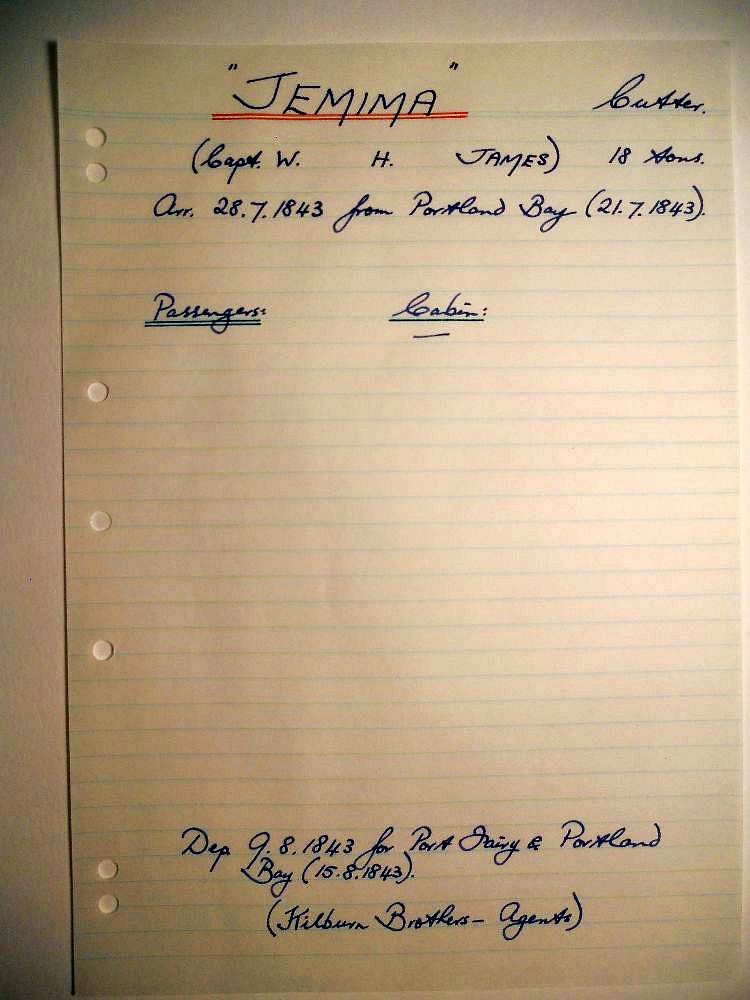 "JEMIMA" Cutter.
(Capt. W. H. JAMES) 18 tons.
Arr. 28.7.1843 from Portland Bay (21.7.1843).
Passengers: Cabin:
—
Dep. 9.8.1843 for Port Fairy & Portland
Bay (15.8.1843).
(Kilburn Brothers - Agents)